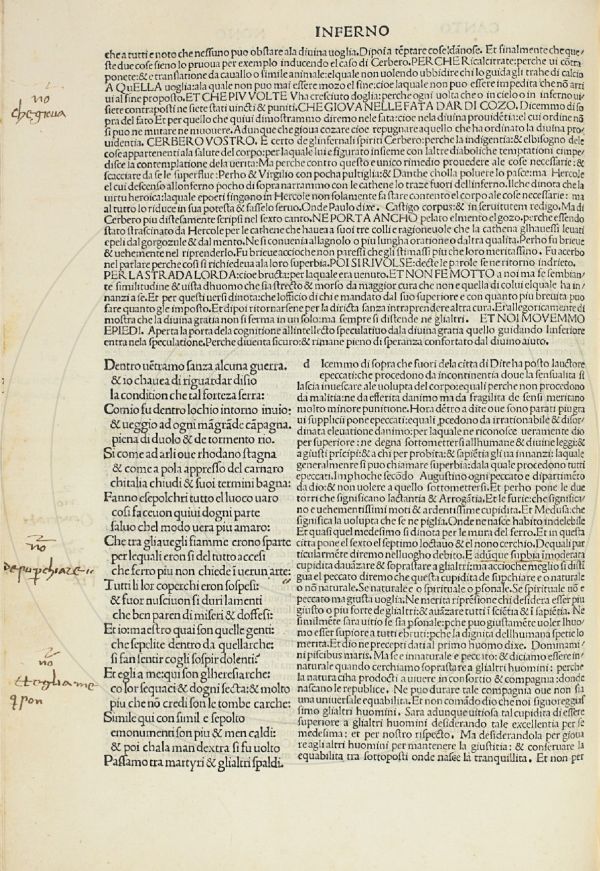 INFERNO
che a tutti e noto che nessuno puo obstare ala diuina uoglia. Dipoi a tẽptare cose dãnose. Et finalmente che que
ste due cose sieno lo pruoua per exemplo inducendo el caso di Cerbero. PERCHE RIcalcitrate: perche ui cõtra
ponete: & e translatione da cauallo o simile animale: elquale non uolendo ubbidire chi lo guida gli trahe di calcio
A QuELLA uoglia: ala quale non puo mai essere mozo el fine: cioe laquale non puo essere impedita che nõ arri
ui al fine proposto. ET CHE PIV VOLTE Vha cresciuto doglia: perche ogni uolta che o in cielo o in inferno ui
siete contraposti ne siete stati uincti & puniti. CHE GIOVA NELLE FATA DAR DI COZO. Dicemmo di so
pra del fato Et per quello che quiui dimostrammo diremo nele fata: cioe nela diuina prouidẽtia: el cui ordine nõ
si puo ne mutare ne muouere. Adunque che gioua cozare cioe repugnare aquello che ha ordinato la diuina pro
uidentia. CERBERO VOSTRO. E certo de glinfernali spiriti Cerbero: perche la indigentia: & elbisogno dele
cose appartenenti ala salute del corpo: per laquale lui e figurato insieme con laltre diaboliche temptationi cimpe
disce la contemplatione dela uerita: Ma perche contro questo e unico rimedio prouedere ale cose necessarie: &
scacciare da se le superflue: Perho & Virgilio con pocha pultiglia: & Danthe cholla poluere lo pasce: ma Hercole
el cui descenso allonferno pocho di sopra narrammo con le cathene lo traze fuori dellinferno. Ilche dinota che la
uirtu heroica: laquale epoeti fingono in Hercole non solamente fa stare contento el corpo ale cose necessarie: ma
al tutto lo riduce in sua potesta & fasselo seruo. Onde Paulo dixe. Castigo corpus: & in seruitutem redigo. Ma di
Cerbero piu distesamente scripsi nel sexto canto. NE PORTA ANCHO pelato el mento el gozo. perche essendo
stato strascinato da Hercole per le cathene che hauea a suoi tre colli e ragioneuole che la cathena glhauessi leuati
epeli dal gorgozule & dal mento. Ne si conuenia allagnolo o piu lungha oratione o daltra qualita. Perho fu brieue
& uehemente nel riprenderlo. Fu brieue accioche non paressi che degli stimassi piu che loro meritassino. Fu acerbo
nel parlare perche cosi si richiedeua ala loro superbia. POI SI RIVOLSE: decte le parole se ne ritorno indrieto.
PER LA STRADA LORDA: cioe bructa: per laquale era uenuto. ET NON FE MOTTO a noi ma fe sembian
te similitudine & uista dhuomo che sia strecto & morso da maggior cura che non e quella di colui elquale ha in/
nanzi a se. Et per questi uersi dinota: che lofficio di chi e mandato dal suo superiore e con quanto piu breuita puo
fare quanto gle imposto. Et di poi ritornarsene per la diricta sanza intraprendere altra cura. Et allegoricamente di
mostra che la diuina gratia non si ferma in un solo: ma sempre si distende ne glialtri. ET NOI MOVEMMO
EPIEDI. Aperta la porta dela cognitione allintellecto speculatiuo dala diuina gratia quello guidando linferiore
entra nela speculatione. Perche diuenta sicuro: & rimane pieno di speranza confortato dal diuino aiuto.
Dentro uẽtramo sanza alcuna guerra.
& io chauea di riguardar disio
la condition che tal forteza serra:
Comio fu dentro lochio intorno inuio:
& ueggio ad ogni mã grãde cãpagna.
piena di duolo & de tormento rio.
Si come ad arli oue rhodano stagna
& come a pola appresso del carnaro
chitalia chiudi & suoi termini bagna:
Fanno esepolchri tutto el luoco uaro
cosi faceuon quiui dogni parte
saluo chel modo uera piu amaro:
Che tra gliauegli fiamme erono sparte
per lequali eron si del tutto accesi
che ferro piu non chiede iuerun arte:
Tutti li lor coperchi eron sospesi:
& fuor nusciuon si duri lamenti
che ben paren di miseri & doffesi:
Et io: maestro quai son quelle genti:
che sepelite dentro da quellarche:
si fan sentir cogli sospir dolenti?
Et egli a me: qui son glheresiarche:
co lor sequaci & dogni secta: & molto
piu che nõ credi son le tombe carche:
Simile qui con simil e sepolto
emonumenti son piu & men caldi:
& poi chala man dextra si fu uolto
Passamo tra martyri & glialtri spaldi.
d Icemmo di sopra che fuori dela citta di Dite ha posto lauctore
epeccati: che procedono da incontinentia doue la sensualita si
lascia inuescare ale uolupta del corpo: equali perche non procedono
da malitia: ne da efferita danimo ma da fragilita de sensi meritano
molto minore punitione. Hora dẽtro a dite oue sono parati piu gra
ui supplicii pone epeccati: equali ꝓcedono da irrationabile & disor
dinata eleuatione danimo: per laquale ne riconosce ueramente dio
per superiore: ne degna sottomettersi allhumane & diuine leggi: &
a giusti prĩcipi: & a chi per probita: & sapiẽtia gli ua innanzi: laquale
generalmente si puo chiamare superbia: dala quale procedono tutti
epeccati. Impho che secõdo Augustino ogni peccato e dipartimẽto
da dio: & non uolere a quello sottomettersi. Et perho pone le due
torri che significano lactantia & Arrogãtia. Et le furie: che significa/
no e uehementissimi moti & ardentissime cupidita. Et Medusa: che
significa la uolupta che se ne piglia. Onde ne nasce habito indelebile
Et quasi quel medesimo si dinota per le mura del ferro. Et in questa
citta pone el sexto el septimo loctauo & el nono cerchio. De quali par
ticularmẽte diremo nelluogho debito. E adũque supbia imoderata
cupidita dauãzare & soprastare a glialtri: ma accioche meglio si disti
gua el peccato diremo che questa cupidita de supchiare e o naturale
o nõ naturale. Se naturale o spirituale o pronale. Se spirituale nõ e
peccato ma giusta uoglia. Ne merita riprensione chi desidera esser piu
giusto o piu forte de glialtri: & auãzare tutti ĩ sciẽtia & ĩ sapiẽtia. Ne
similmẽte sara uitio se sia psonale: pche puo giustamẽte uoler lhuo/
mo esser supiore a tutti ebruti: pche la dignita dellhumana spetie lo
merita. Et dio ne precepti dati al primo huomo dixe. Dominami
ni piscibus maris. Ma se innaturale e peccato: & diciamo essere in/
naturale quando cerchiamo soprastare a glialtri huomini: perche
la natura ciha prodocti a uiuere in consortio & compagnia: donde
nascano le republice. Ne puo durare tale compagnia oue non sia
una uniuersale equabilita. Et non comãdo dio che noi signoreggias
simo glialtri huomini. Sara adunque uitiosa tal cupidita di essere
superiore a glialtri huomini desiderando tale excellentia per se
medesima: et per nostro rispecto. Ma desiderandola per gioua
re agli altri huomini per mantenere la giustitia: & conseruare la
equabilita tra sottoposti onde nasce la tranquillita. Et non per
nõ
che gioua
nõ
nõ